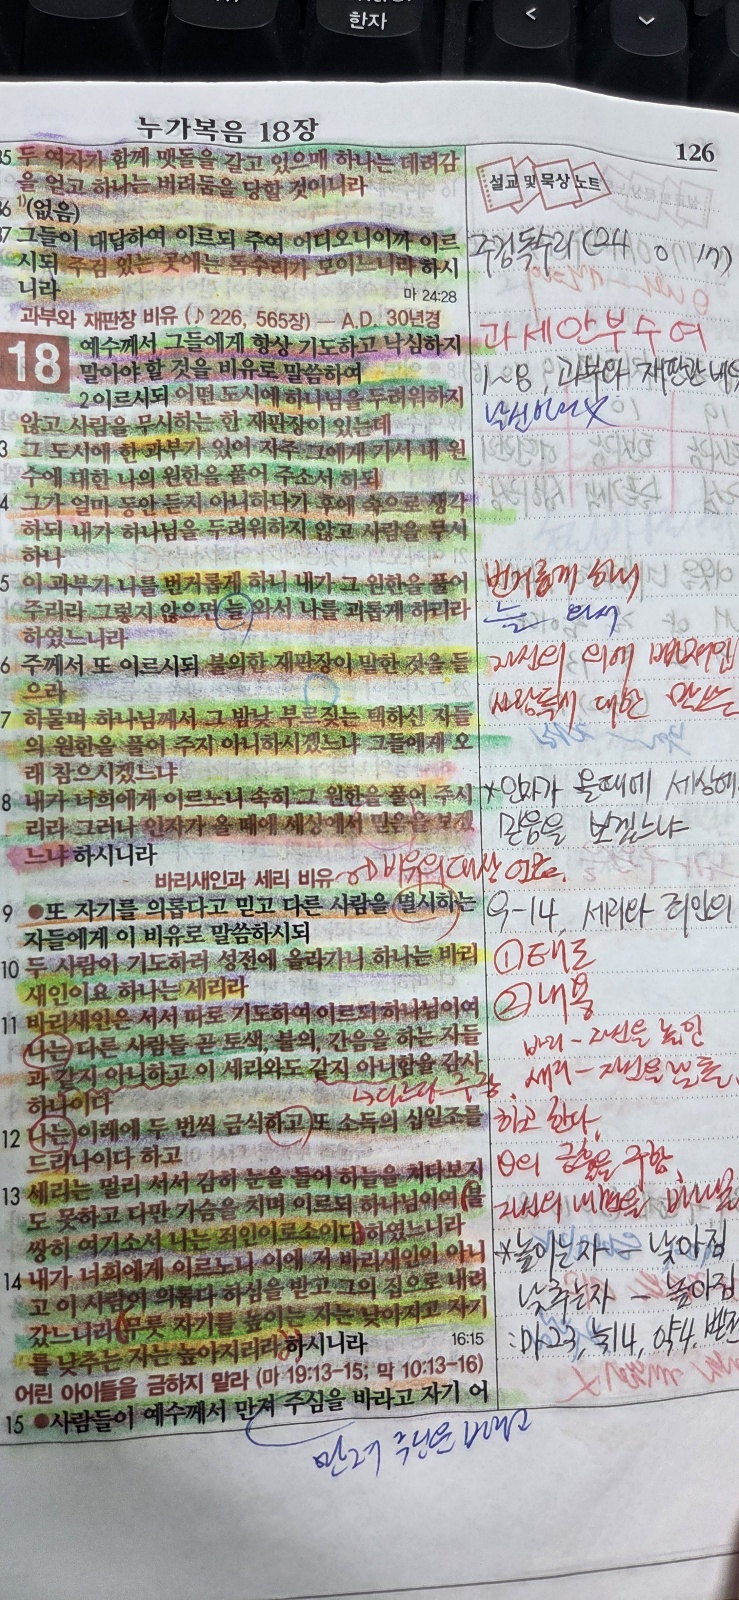 한자
누가복음 18장
126
35 두 여자가 함께 맷돌을 갈고 있으매 하나는 데려감
을 얻고 하나는 버려둠을 당할 것이니라
36 1)(없음)
37 그들이 대답하여 이르되 주여 어디오니이까 이르
시되 주검 있는 곳에는 독수리가 모이느니라 하시
니라
마 24:28
과부와 재판장 비유 (♪ 226, 565장) — A.D. 30년경
18 예수께서 그들에게 항상 기도하고 낙심하지
말아야 할 것을 비유로 말씀하여
2 이르시되 어떤 도시에 하나님을 두려워하지
않고 사람을 무시하는 한 재판장이 있는데
3 그 도시에 한 과부가 있어 자주 그에게 가서 내 원
수에 대한 나의 원한을 풀어 주소서 하되
4 그가 얼마 동안 듣지 아니하다가 후에 속으로 생각
하되 내가 하나님을 두려워하지 않고 사람을 무시
하나
5 이 과부가 나를 번거롭게 하니 내가 그 원한을 풀어
주리라 그렇지 않으면 늘 와서 나를 괴롭게 하리라
하였느니라
6 주께서 또 이르시되 불의한 재판장이 말한 것을 들
으라
7 하물며 하나님께서 그 밤낮 부르짖는 택하신 자들
의 원한을 풀어 주지 아니하시겠느냐 그들에게 오
래 참으시겠느냐
8 내가 너희에게 이르노니 속히 그 원한을 풀어 주시
리라 그러나 인자가 올 때에 세상에서 믿음을 보겠
느냐 하시니라
바리새인과 세리 비유
비유의 대상
9 ●또 자기를 의롭다고 믿고 다른 사람을 멸시하는
자들에게 이 비유로 말씀하시되
10 두 사람이 기도하러 성전에 올라가니 하나는 바리
새인이요 하나는 세리라
11 바리새인은 서서 따로 기도하여 이르되 하나님이여
나는 다른 사람들 곧 토색, 불의, 간음을 하는 자들
과 같지 아니하고 이 세리와도 같지 아니함을 감사
하나이다
12 나는 이레에 두 번씩 금식하고 또 소득의 십일조를
드리나이다 하고
13 세리는 멀리 서서 감히 눈을 들어 하늘을 쳐다보지
도 못하고 다만 가슴을 치며 이르되 하나님이여 불
쌍히 여기소서 나는 죄인이로소이다 하였느니라
14 내가 너희에게 이르노니 이에 저 바리새인이 아니
고 이 사람이 의롭다 하심을 받고 그의 집으로 내려
갔느니라 무릇 자기를 높이는 자는 낮아지고 자기
를 낮추는 자는 높아지리라 하시니라
16:15
어린 아이들을 금하지 말라 (마 19:13-15; 막 10:13-16)
15 ●사람들이 예수께서 만져 주심을 바라고 자기 어
만져 주심을 바라고
설교 및 묵상 노트
주검 독수리 (24
과세안부수여
1~8, 과부와 재판관 비유
번거롭게 하니
늘 와서
자신의 의에
*인자가 올때에 세상에
믿음을 보겠느냐
9-14, 세리와 죄인의
① 태도
② 내용
바리 - 자신을 높임
세리 - 자신을
하고 한다.
의 긍휼을 구함
자신의 내면을
*높이는자 = 낮아짐
낮추는자 - 높아짐
: 마23, 눅14, 약4, 벧전